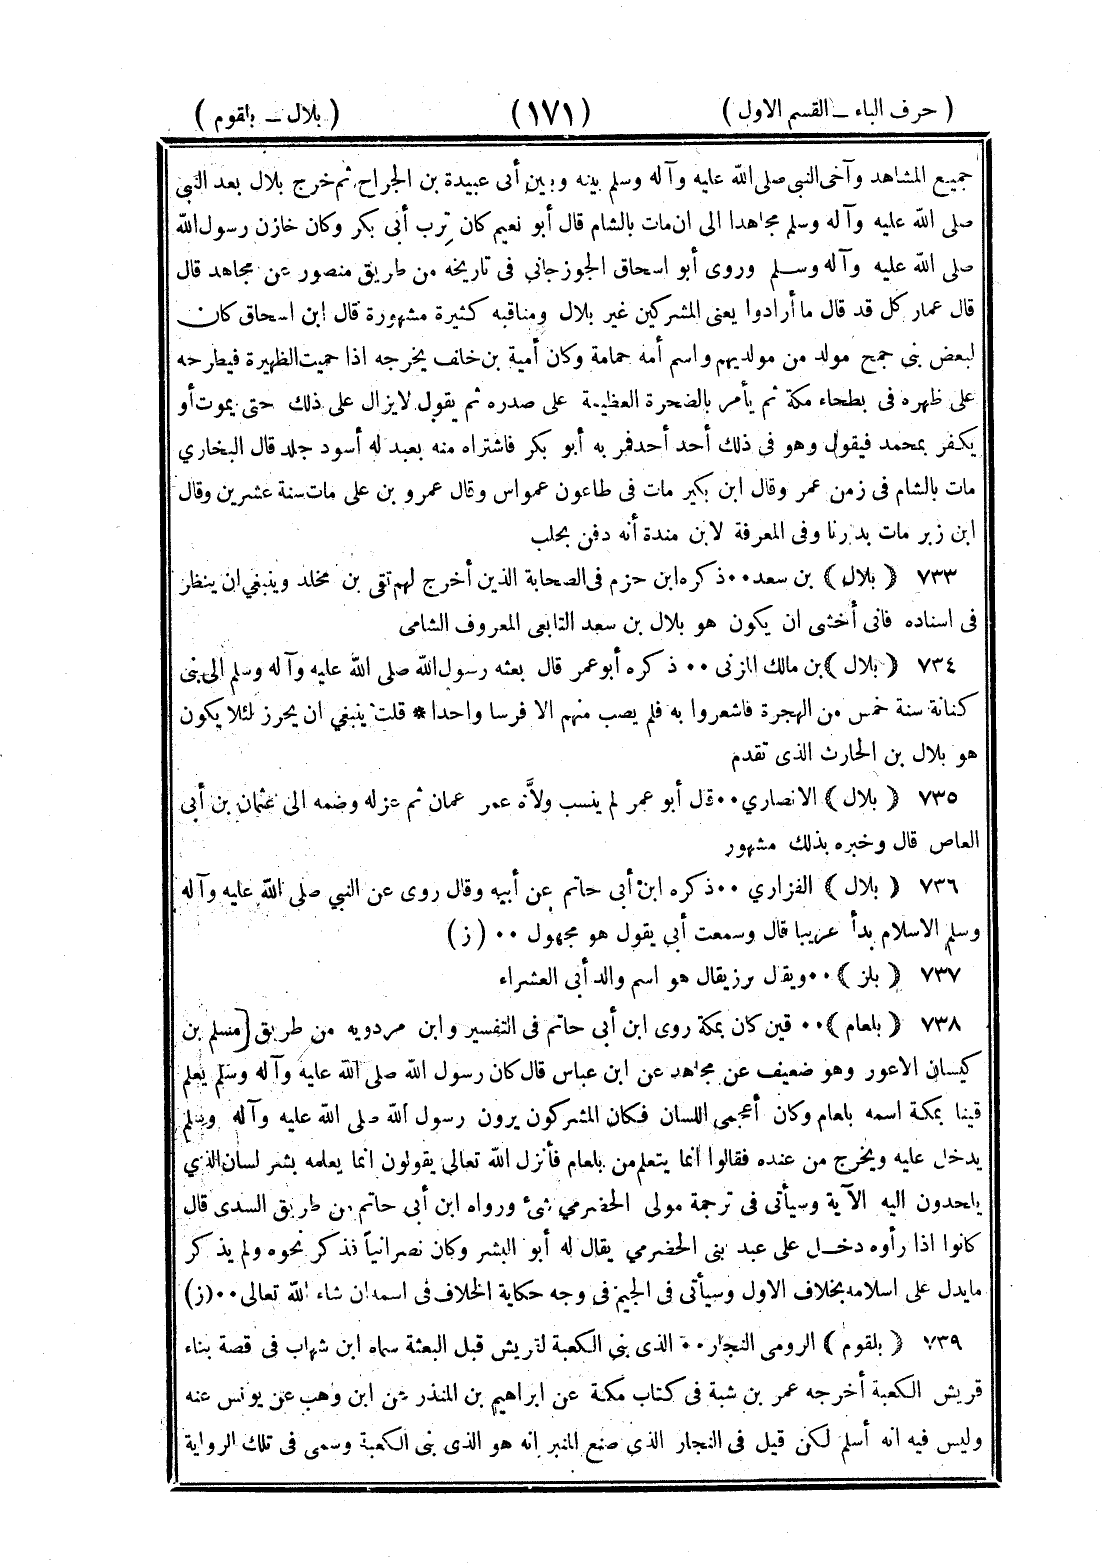 ( حرف الباء ــ القسم الاول ) (١٧١) ( بلال ــ بلقوم )
جميع المشاهد وآخى النبي صلى الله عليه وآله وسلم بينه وبين أبى عبيدة بن الجراح ثم خرج بلال بعد النبي
صلى الله عليه وآله وسلم مجاهدا الى ان مات بالشام قال أبو نعيم كان ترب أبى بكر وكان خازن رسول الله
صلى الله عليه وآله وسلم وروى أبو اسحاق الجوزجاني فى تاريخه من طريق منصور عن مجاهد قال
قال عمار كل قد قال ما أرادوا يعنى المشركين غير بلال ومناقبه كثيرة مشهورة قال ابن اسحاق كان
لبعض بنى جمح مولد من مولديهم واسم أمه حمامة وكان أمية بن خلف يخرجه اذا حميت الظهيرة فيطرحه
على ظهره فى بطحاء مكة ثم يأمر بالضخرة العظيمة على صدره ثم يقول لايزال على ذلك حتى يموت أو
يكفر بمحمد فيقول وهو فى ذلك أحد أحد فمر به أبو بكر فاشتراه منه بعبد له أسود جلد قال البخاري
مات بالشام فى زمن عمر وقال ابن بكير مات فى طاعون عمواس وقال عمرو بن على مات سنة عشرين وقال
ابن زبر مات بدرنا وفى المعرفة لابن مندة أنه دفن بحلب
٧٣٣ ( بلال ) بن سعد ٠٠ ذكره ابن حزم فى الصحابة الذين أخرج لهم تقى بن مخلد وينبغي ان ينظر
فى اسناده فانى أخشى ان يكون هو بلال بن سعد التابعى المعروف الشامى
٧٣٤ ( بلال ) بن مالك المزنى ٠٠ ذكره أبو عمر قال بعثه رسول الله صلى الله عليه وآله وسلم الى بنى
كنانة سنة خمس من الهجرة فاشعروا به فلم يصب منهم الا فرسا واحدا * قلت ينبغي ان يحرز لئلا يكون
هو بلال بن الحارث الذى تقدم
٧٣٥ ( بلال ) الانصاري ٠٠ قال أبو عمر لم ينسب ولاَّه عمر عمان ثم عزله وضمه الى عثمان بن أبى
العاص قال وخبره بذلك مشهور
٧٣٦ ( بلال ) الفزاري ٠٠ ذكره ابن أبى حاتم عن أبيه وقال روى عن النبي صلى الله عليه وآله
وسلم الاسلام بدأ غريبا قال وسمعت أبي يقول هو مجهول ٠٠ (ز)
٧٣٧ ( بلز ) ٠٠ ويقال برز يقال هو اسم والد أبى العشراء
٧٣٨ ( بلعام ) ٠٠ قين كان بمكة روى ابن أبى حاتم فى التفسير وابن مردويه من طريق [مسلم بن
كيسان الاعور وهو ضعيف عن مجاهد عن ابن عباس قال كان رسول الله صلى الله عليه وآله وسلم يعلم
قينا بمكة اسمه بلعام وكان أعجمى اللسان فكان المشركون يرون رسول الله صلى الله عليه وآله وسلم
يدخل عليه ويخرج من عنده فقالوا انما يتعلم من بلعام فأنزل الله تعالى يقولون انما يعلمه بشر لسان الذي
يلحدون اليه الآية وسيأتى فى ترجمة مولى الحضرمي شئ ورواه ابن أبى حاتم من طريق السدى قال
كانوا اذا رأوه دخل على عبد بنى الحضرمي يقال له أبو البشر وكان نصرانياً فذكر نحوه ولم يذكر
مايدل على اسلامه بخلاف الاول وسيأتى فى الجيم فى وجه حكاية الخلاف فى اسمه ان شاء الله تعالى ٠٠ (ز)
٧٣٩ ( بلقوم ) الرومى النجار ٠٠ الذى بنى الكعبة لقريش قبل البعثة سماه ابن شهاب فى قصة بناء
قريش الكعبة أخرجه عمر بن شبة فى كتاب مكة عن ابراهيم بن المنذر عن ابن وهب عن يونس عنه
وليس فيه انه أسلم لكن قيل فى النجار الذى صنع المنبر انه هو الذى بنى الكعبة وسمى فى تلك الرواية